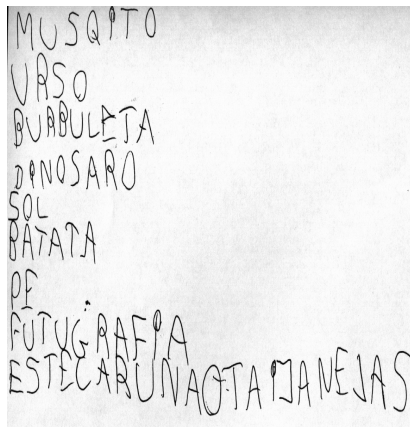 MUSQITO
URSO
BURBULETA
DINOSARO
SOL
BATATA
PE
FUTUGRAFIA
ESTECARUNAOTAIJANEJAS